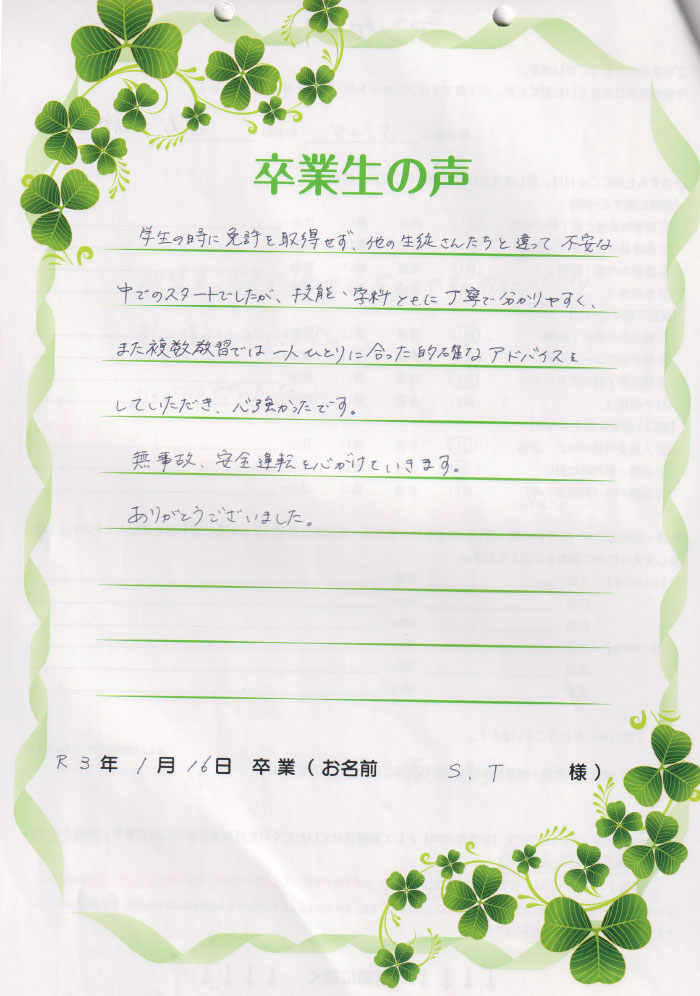 卒業生の声
学生の時に免許を取得せず、他の生徒さんたちと違って不安な
中でのスタートでしたが、技能・学科ともに丁寧で分かりやすく、
また複数教習では一人ひとりに合った的確なアドバイスを
していただき、心強かったです。
無事故、安全運転を心がけていきます。
ありがとうございました。
R3年 1月 16日 卒業(お名前 S.T 様)